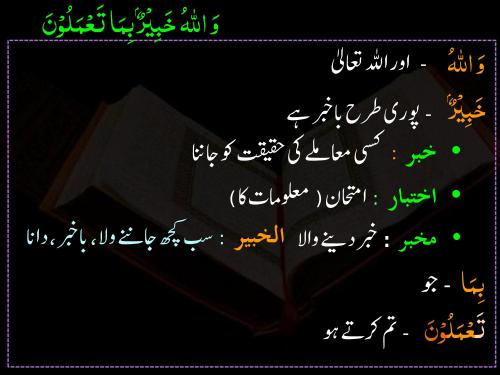 وَاللهُ خَبِيْرٌۢ بِمَا تَعْمَلُوْنَ
وَاللهُ - اور اللہ تعالیٰ
خَبِيْرٌۢ - پوری طرح باخبر ہے
• خبر : کسی معاملے کی حقیقت کو جاننا
• اختبار : امتحان ( معلومات کا)
• مخبر : خبر دینے والا الخبیر : سب کچھ جاننے ولا، باخبر ، دانا
بِمَا - جو
تَعْمَلُوْنَ - تم کرتے ہو